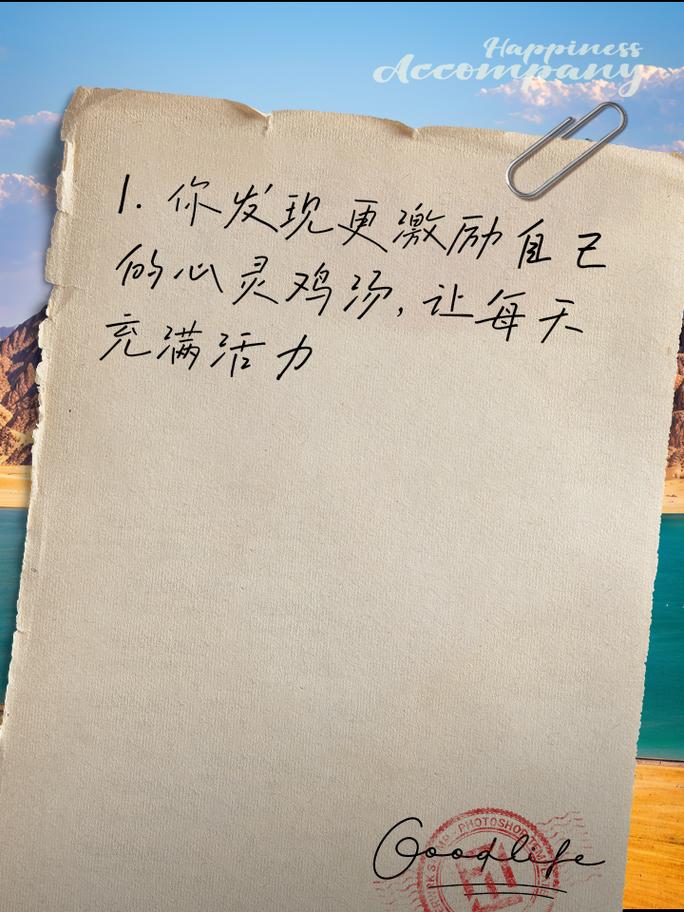 Happiness
Accompany
1. 你发现更激励自己
的心灵鸡汤,让每天
充满活力
PHOTOSHOP
Goodlife